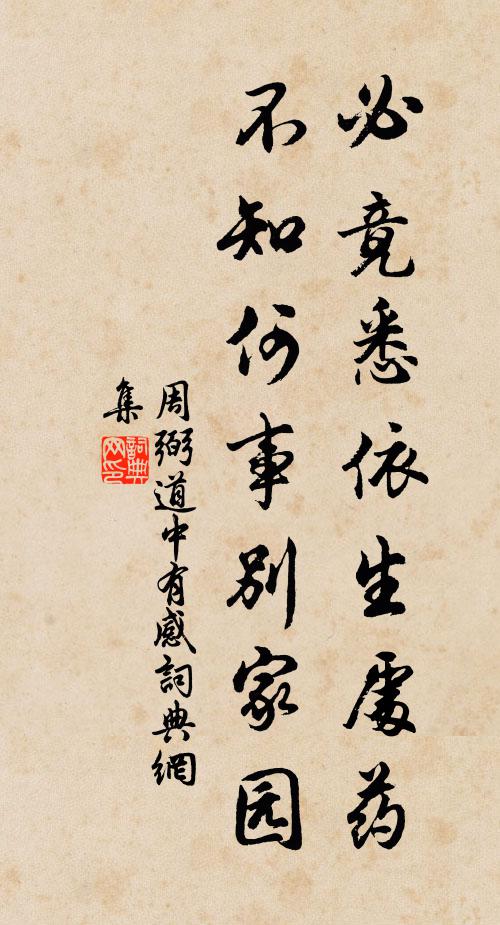 必竟悉依生處药
不知何事别家园
周弼道中有感詞典網
集
詞典
网印